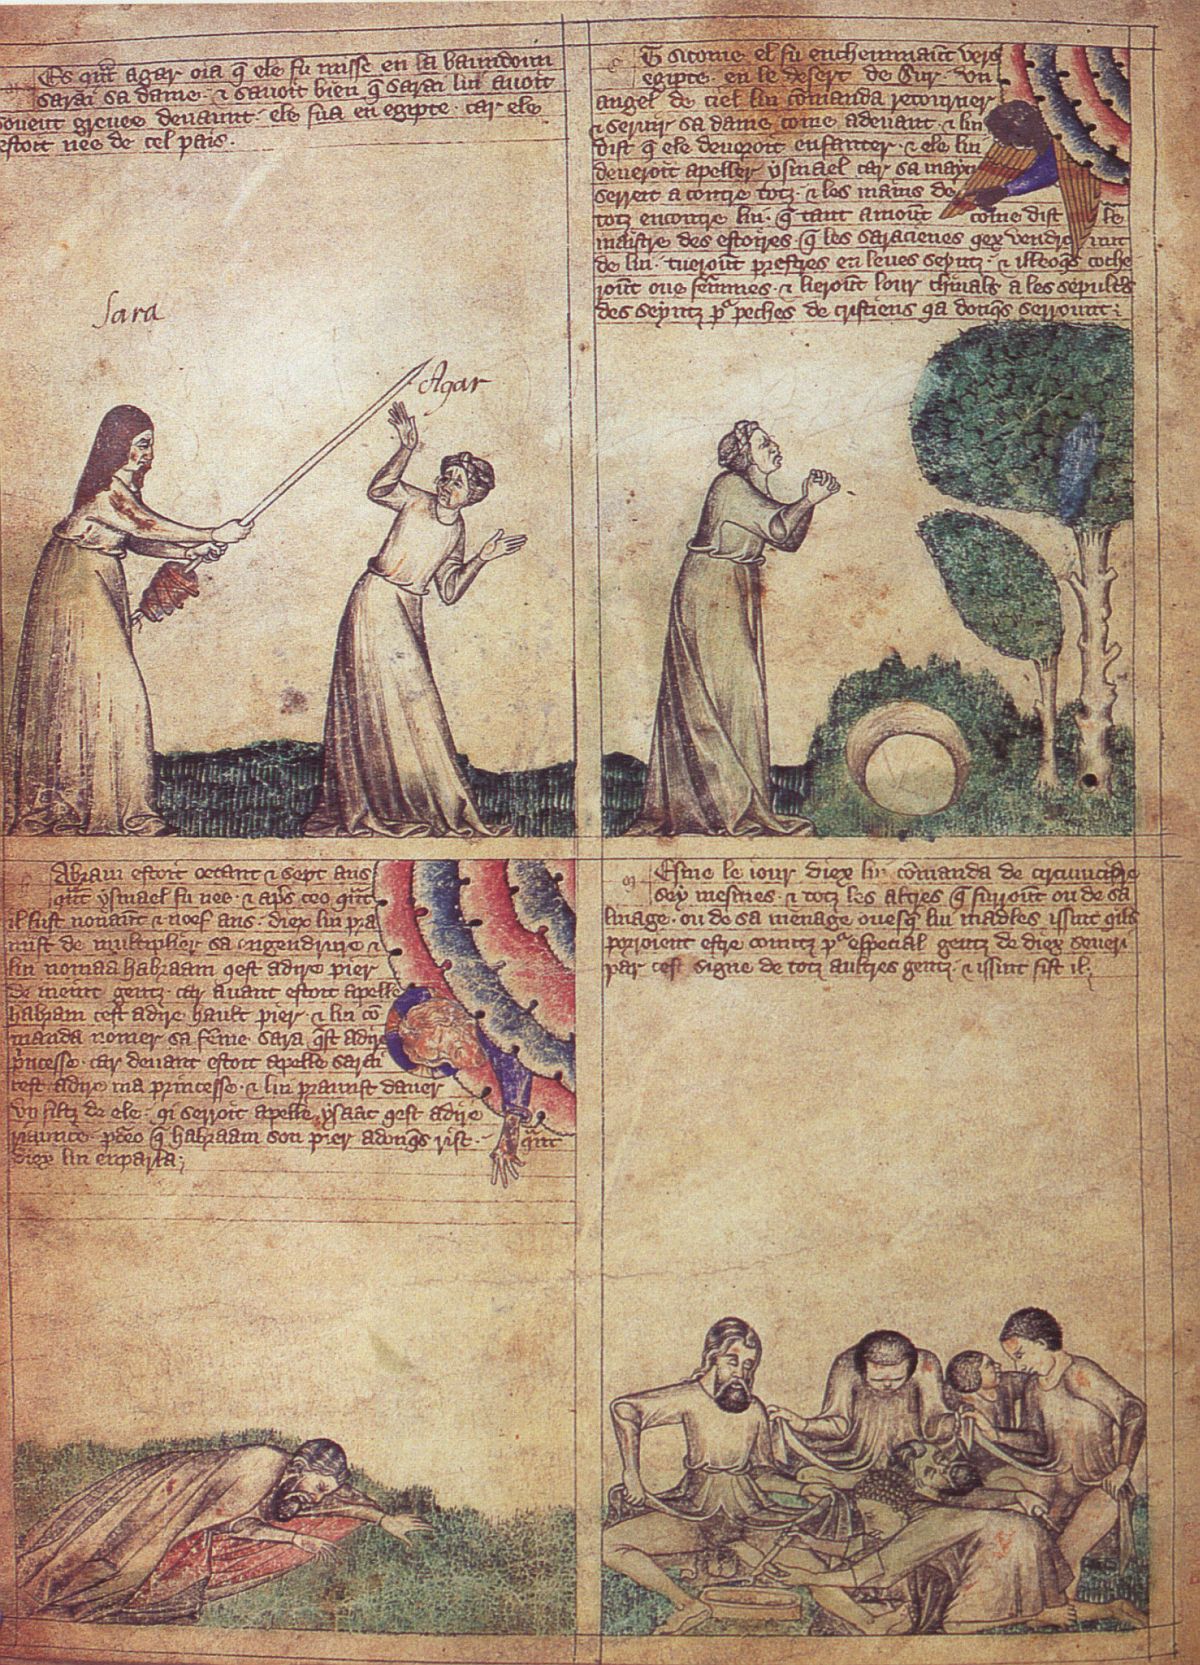 Es qnt agar oia q ele fu mise en la baundoun
sarai sa dame · & savoit bien q sarai lui avoit
sovent grevee devaunt · ele fua en egipte · car ele
estoit nee de cel pais ·
Sara
Agar
Et sicome el fu encheminaunt vers
egipte · en le desert de Sur · un
angel de ciel lui comanda retourner
& servir sa dame come advant · & lui
dist q ele deveroit enfanter · & ele lui
deveroit apeller ysmael car sa mayn
serreit a contre totz · & les mains de
totz encontre lui · q tant amount come dist le
maistre des estoires · q les saracienes qex vendrount
de lui · tueront prestres en leues seyntz · & illeoqs coche
ront ove femmes · & lieront lour chivals a les sepultres
des seyntz p peches de cristiens qa donqs serrount ;
Abram estoit octant & sept ans
qnt ysmael fu nee · & aps ceo qnt
il fust nonant & noef ans · diex lui pra
mist de multiplier sa engendrure &
lui nomaa habraam qest adire pier
de meint gentz · car avant estoit apelle
habram cest adire hault pier · & lui co
manda nomer sa feme sara qest adire
princesse · car devant estoit apelle sarai
cest adire ma princesse · & lui pramist daver
un filtz de ele · qi serroit apelle ysaac qest adire
riaunce · pceo q habraam son pier adonqs rist · qnt
diex lui enparla ;
Esme le iour diex lui comanda de circumcidre
sey mesmes · & totz les altres q furont ou de sa
linage · ou de sa menage ovesq lui madles issint qils
porroient estre contez p especial gentz de diex severi
par cest signe de totz aultres gentz · & issint fist il ;